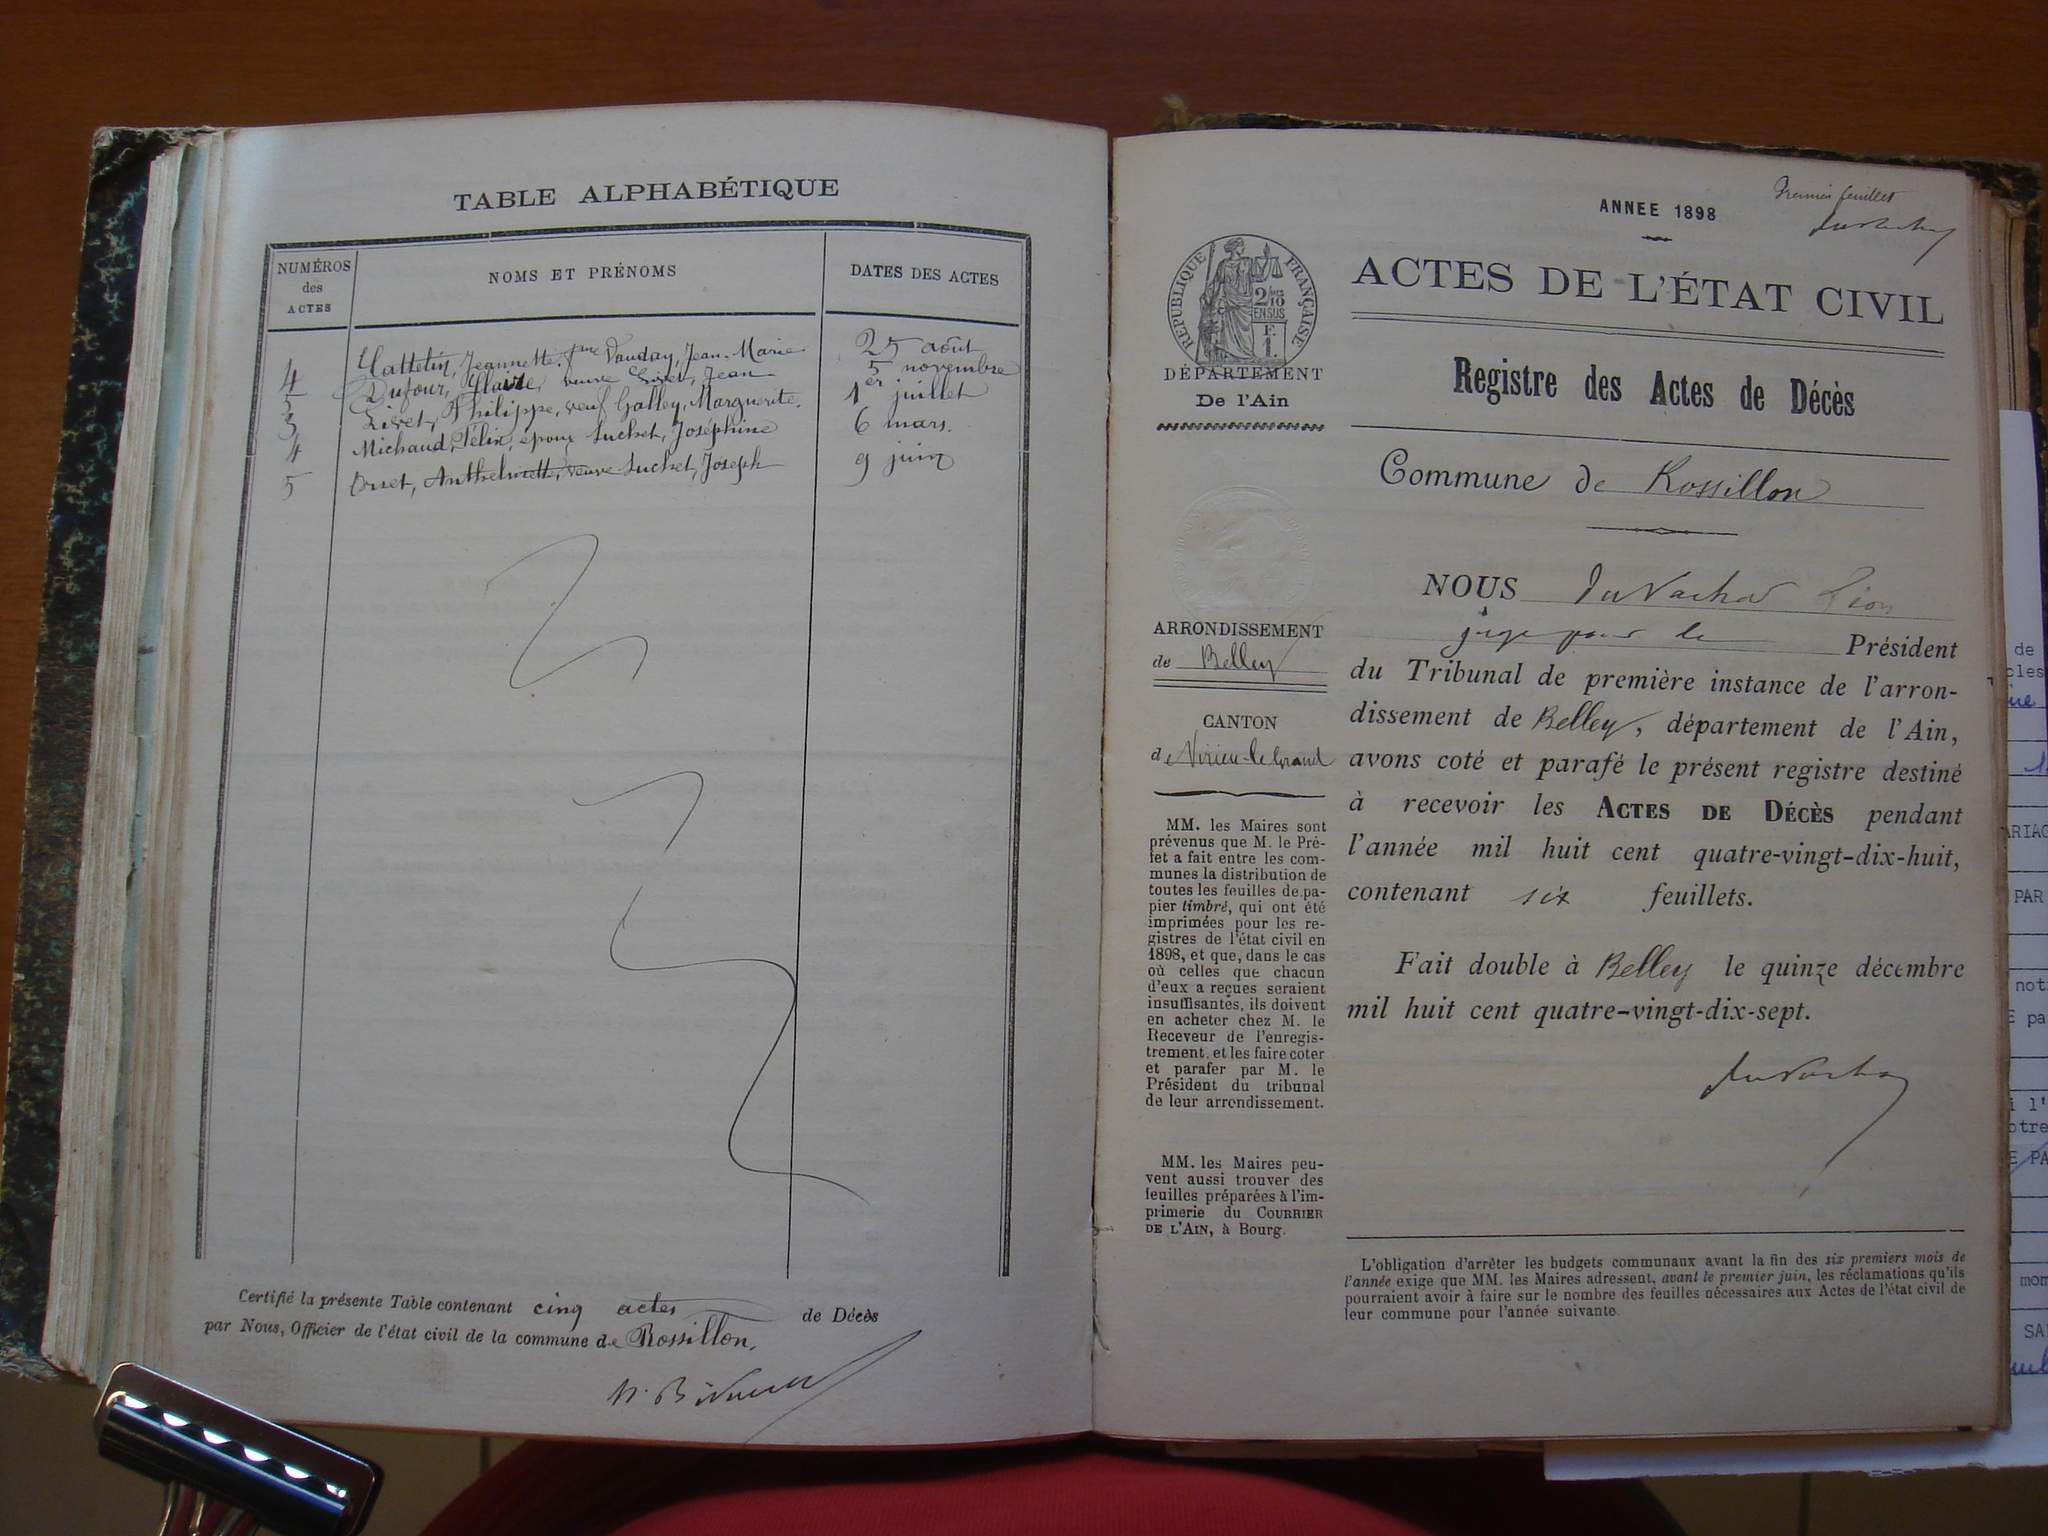 TABLE ALPHABÉTIQUE
NUMÉROS
des
ACTES
NOMS ET PRÉNOMS
DATES DES ACTES
4 Jeannette, fme Vauday, Jean-Marie 25 août
5 Dufour, Claire, veuve Livet, Jean 5 novembre
3 Livet, Philippe, veuf Galley, Marguerite. 1er juillet
4 Michaud, Félix, époux Luchet, Joséphine 6 mars.
5 Orset, veuve Luchet, Joseph 9 juin
Certifié la présente Table contenant cinq actes de Décès
par Nous, Officier de l'état civil de la commune de Rossillon.
Premier feuillet
ANNEE 1898
RÉPUBLIQUE FRANÇAISE
2 10
EN SUS
F.
1.
ACTES DE L'ÉTAT CIVIL
DÉPARTEMENT
De l'Ain
Registre des Actes de Décès
Commune de Rossillon
ARRONDISSEMENT
de Belley
CANTON
de Virieu-le-Grand
MM. les Maires sont
prévenus que M. le Pré-
fet a fait entre les com-
munes la distribution de
toutes les feuilles de pa-
pier timbré, qui ont été
imprimées pour les re-
gistres de l'état civil en
1898, et que, dans le cas
où celles que chacun
d'eux a reçues seraient
insuffisantes, ils doivent
en acheter chez M. le
Receveur de l'enregis-
trement, et les faire coter
et parafer par M. le
Président du tribunal
de leur arrondissement.
MM. les Maires peu-
vent aussi trouver des
feuilles préparées à l'im-
primerie du COURRIER
DE L'AIN, à Bourg.
NOUS
juge pour le Président
du Tribunal de première instance de l'arron-
dissement de Belley, département de l'Ain,
avons coté et parafé le présent registre destiné
à recevoir les ACTES DE DÉCÈS pendant
l'année mil huit cent quatre-vingt-dix-huit,
contenant six feuillets.
Fait double à Belley le quinze décembre
mil huit cent quatre-vingt-dix-sept.
L'obligation d'arrêter les budgets communaux avant la fin des six premiers mois de
l'année exige que MM. les Maires adressent, avant le premier juin, les réclamations qu'ils
pourraient avoir à faire sur le nombre des feuilles nécessaires aux Actes de l'état civil de
leur commune pour l'année suivante.